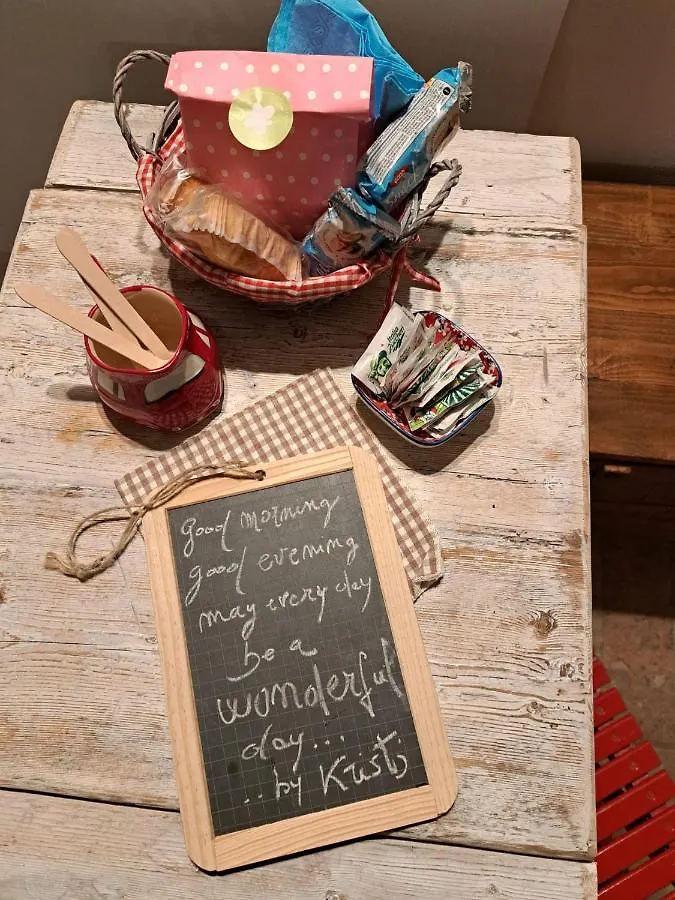 good morning
good evening
may every day
be a
wonderful
day...
..by Kristi